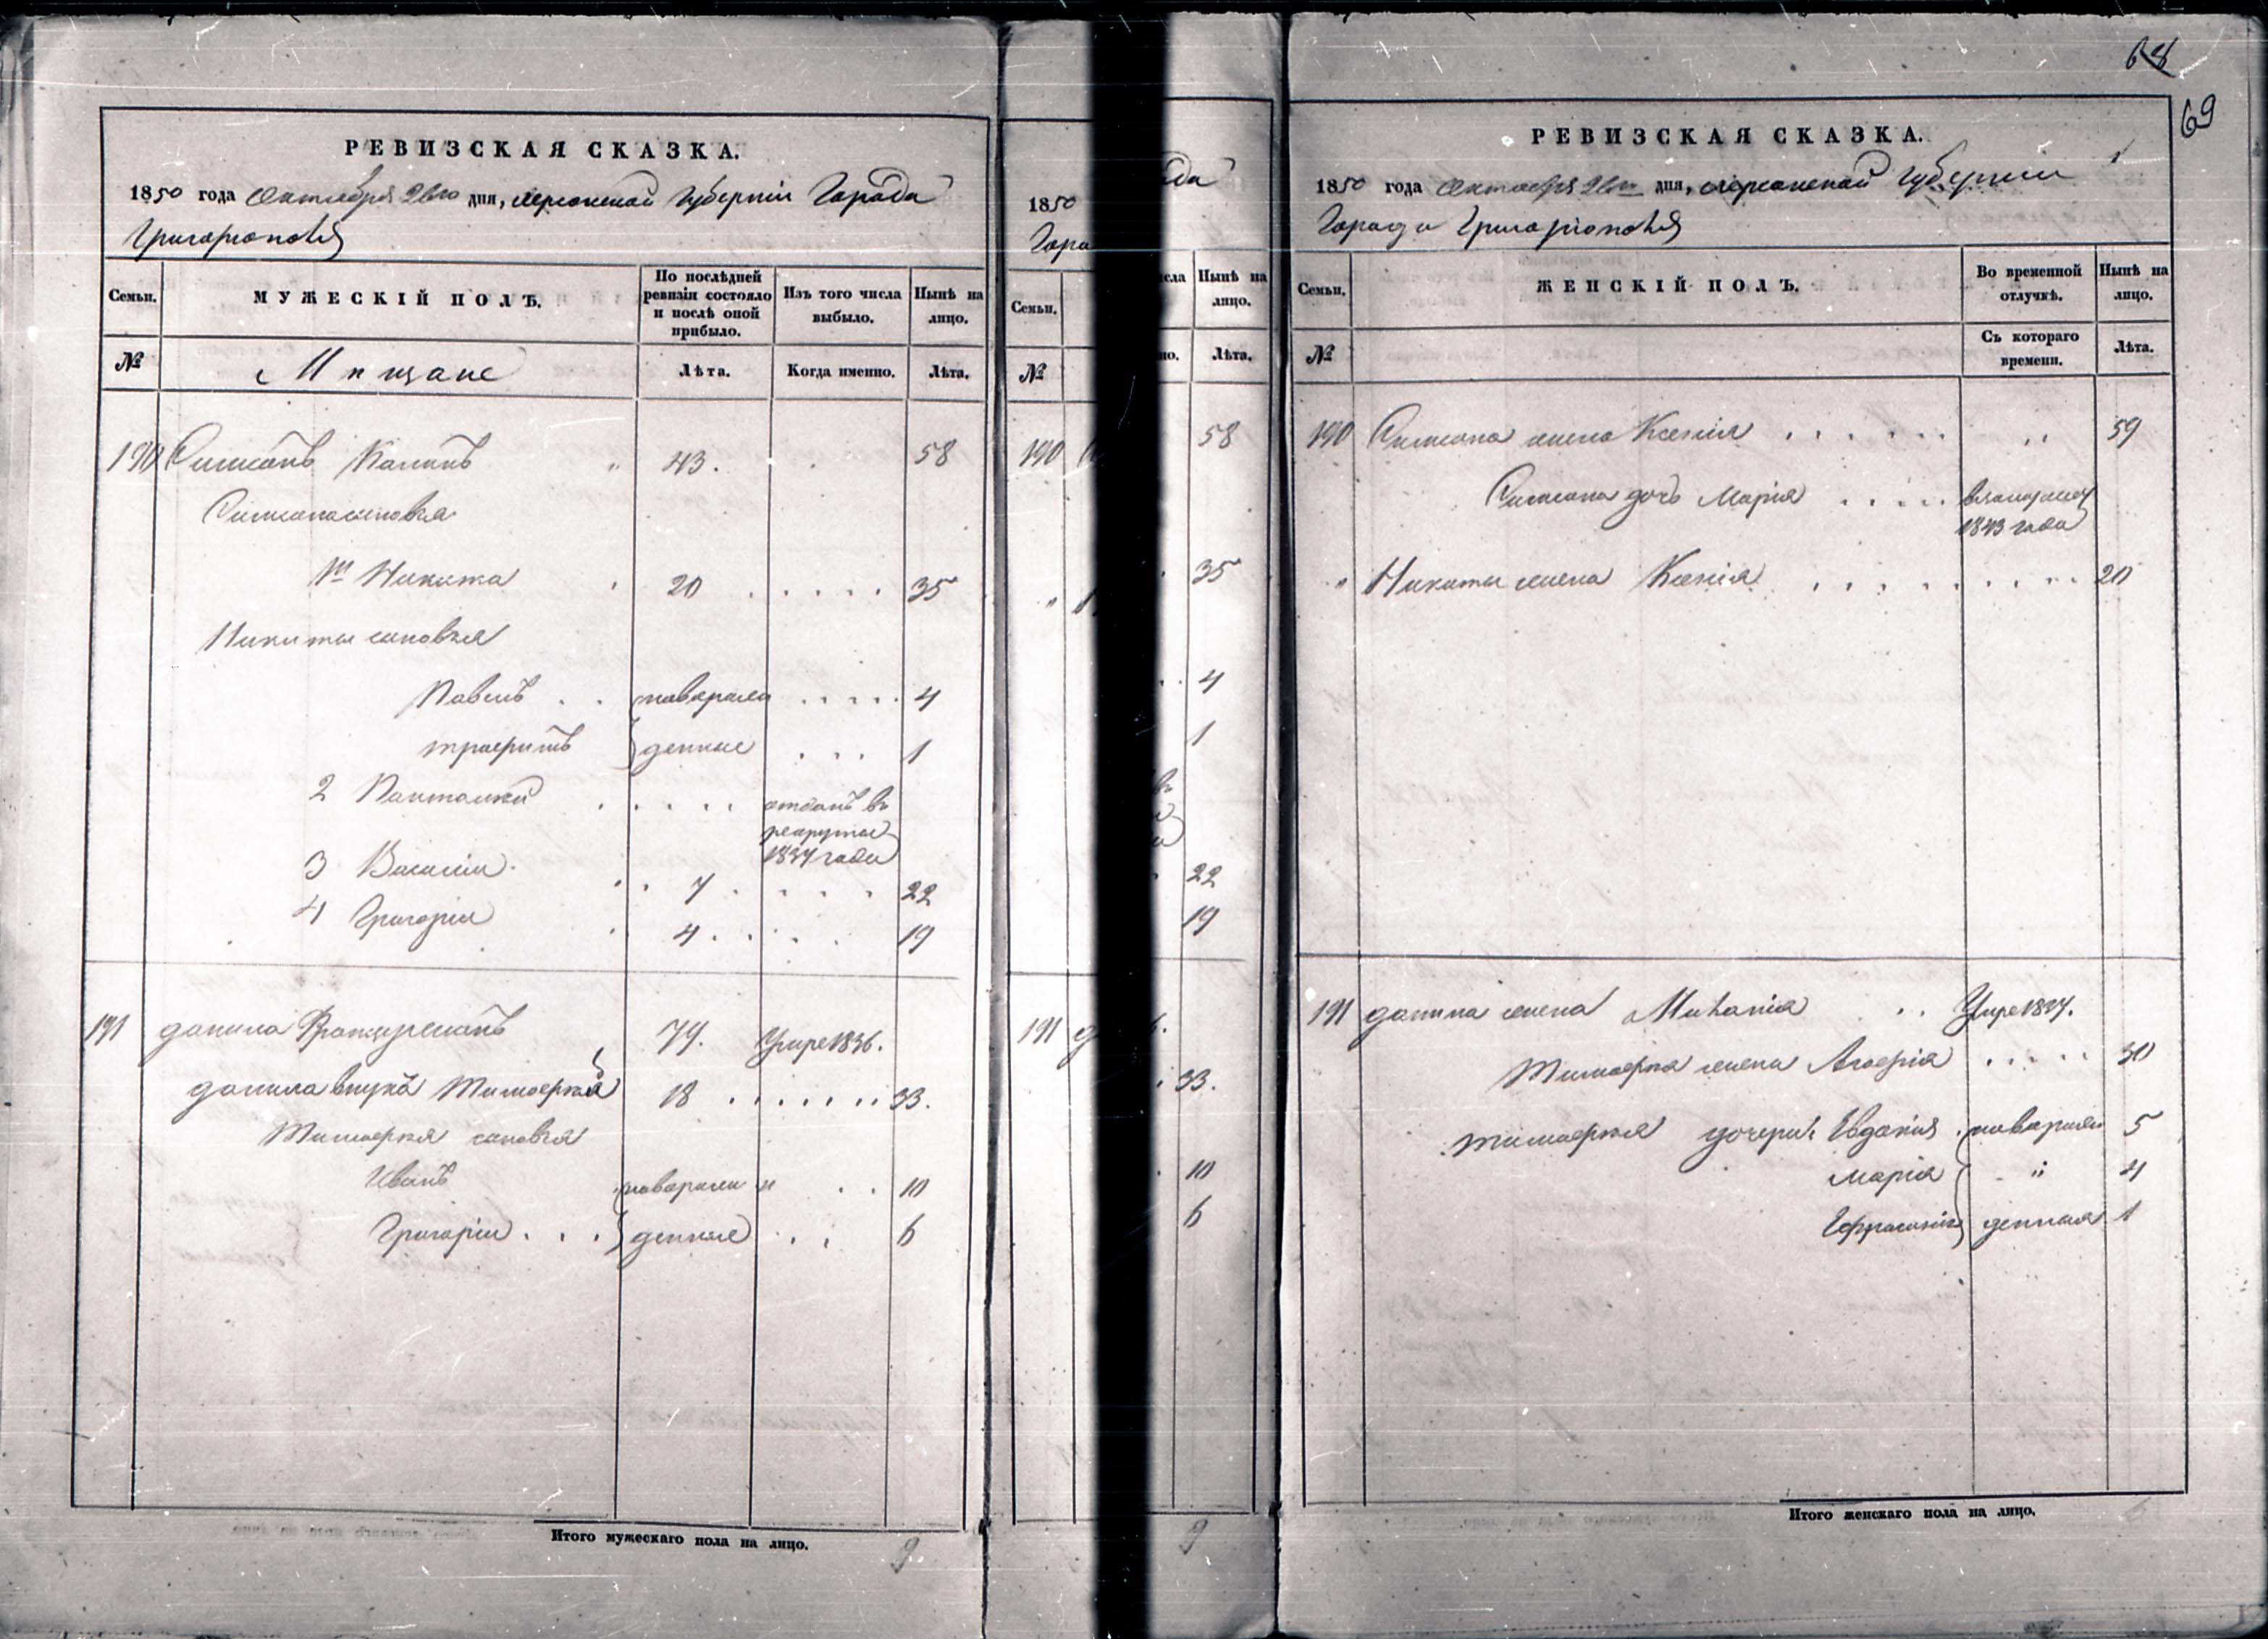 РЕВИЗСКАЯ СКАЗКА.
1850 года Октября 2го дня, Херсонской Губерніи Города
Григоріополя
Семьи. МУЖЕСКІЙ ПОЛЪ. По послѣдней ревизіи состояло и послѣ оной прибыло. Изъ того числа выбыло. Нынѣ на лицо.
№ Мѣщане Лѣта. Когда именно. Лѣта.
190 Симіонъ 43. 58
Симіона сыновья
1й Никита 20 35
Никиты сыновья
Павелъ новорож 4
денные 1
2 Пантелей отданъ въ
рекруты
1837 года
3 Василій 7 22
4 Григорій 4 19
191 данила 79. Умре 1836.
данила внукъ Тимофей 18 33.
Тимофея сыновья
Иванъ новорож 10
Григорій денные 6
Итого мужескаго пола на лицо. 9
1850
Горо
Семьи.
№
190
191
да
исла Нынѣ на лицо.
но. Лѣта.
58
35
4
1
22
19
33.
10
6
9
68
69
РЕВИЗСКАЯ СКАЗКА.
1850 года Октября 2го дня, Херсонской Губерніи
Города Григоріополя
Семьи. ЖЕНСКІЙ ПОЛЪ. Во временной отлучкѣ. Нынѣ на лицо.
№ Съ котораго времени. Лѣта.
190 Симіона жена Ксенія 59
Симіона дочь Марія взамужест
1843 года
" Никиты жена Ксенія 20
191 данила жена Умре 1837.
жена 30
Тимофея дочери: Евдокія новорож 5
Марія " 4
Ефросинія денныя 1
Итого женскаго пола на лицо. 6